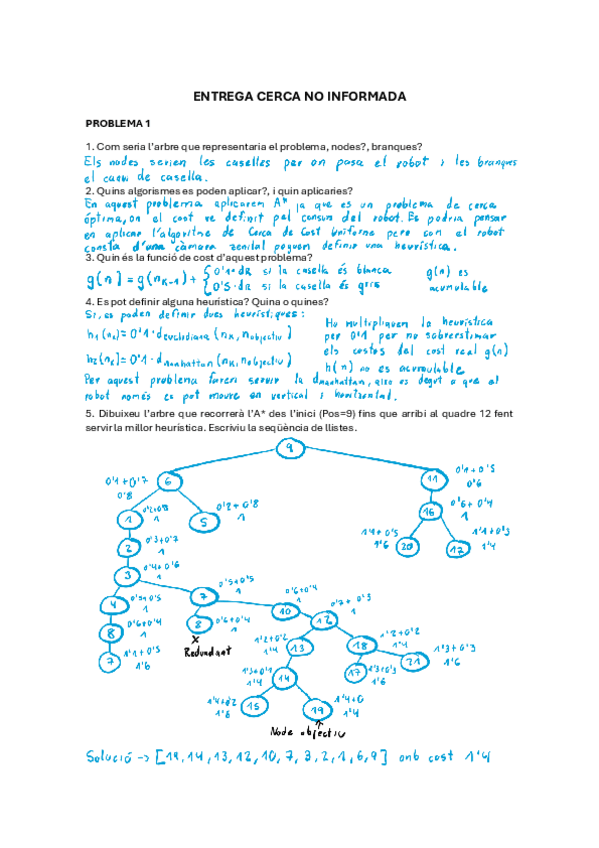 ENTREGA CERCA NO INFORMADA
PROBLEMA 1
1. Com seria l'arbre que representaria el problema, nodes?, branques?
Els nodes serien les caselles per on pasa el robot i les branques
el canvi de casella.
2. Quins algorismes es poden aplicar?, i quin aplicaries?
En aquest problema aplicarem A* ja que es un problema de cerca
óptima, on el cost ve definit pel consum del robot. Es podria pensar
en aplicar l'algoritme de Cerca de Cost Uniforme pero com el robot
consta d'una càmara zenital poguem definir una heurística.
3. Quin és la funció de cost d'aquest problema?
g(n) = g(n_k-1) + { 0'1·dR si la casella és blanca
0'5·dR si la casella és gris
g(n) es
acumulable
4. Es pot definir alguna heurística? Quina o quines?
Si, es poden definir dues heurístiques:
h1(n_k) = 0'1·d_euclidiana(n_k, n_objectiu)
h2(n_k) = 0'1·d_manhattan(n_k, n_objectiu)
Ho multipliquem la heurística
per 0'1 per no sobrestimar
els costos del cost real g(n)
h(n) no es acumulable
Per aquest problema farem servir la d_manhattan, aixo es degut a que el
robot només es pot moure en vertical i horitzontal.
5. Dibuixeu l'arbre que recorrerà l'A* des l'inici (Pos=9) fins que arribi al quadre 12 fent
servir la millor heurística. Escriviu la seqüència de llistes.
9
6 0'1+0'7 0'8
11 0'1+0'5 0'6
1 0'2+0'8 1
5 0'2+0'8 1
16 0'6+0'4 1
2 0'3+0'7 1
20 1'1+0'5 1'6
12 1'1+0'3 1'4
3 0'4+0'6 1
4 0'5+0'5 1
7 0'5+0'5 1
10 0'6+0'4 1
8 0'6+0'4 1
8 0'6+0'4 1
12 0'7+0'3
X
Redundant
7 1'1+0'5 1'6
13 1'2+0'2 1'4
18 1'2+0'2 1'4
14 1'3+0'1 1'4
17 1'3+0'3 1'6
21 1'3+0'3 1'6
15 1'4+0'2 1'6
19 1'4+0 1'4
Node objectiu
Solució -> [19, 14, 13, 12, 10, 7, 3, 2, 1, 6, 9] amb cost 1'4